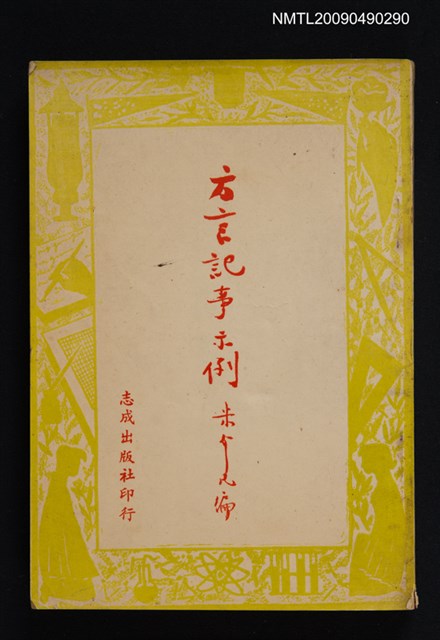 NMTL20090490290
方言記事示例
朱介凡編
志成出版社印行